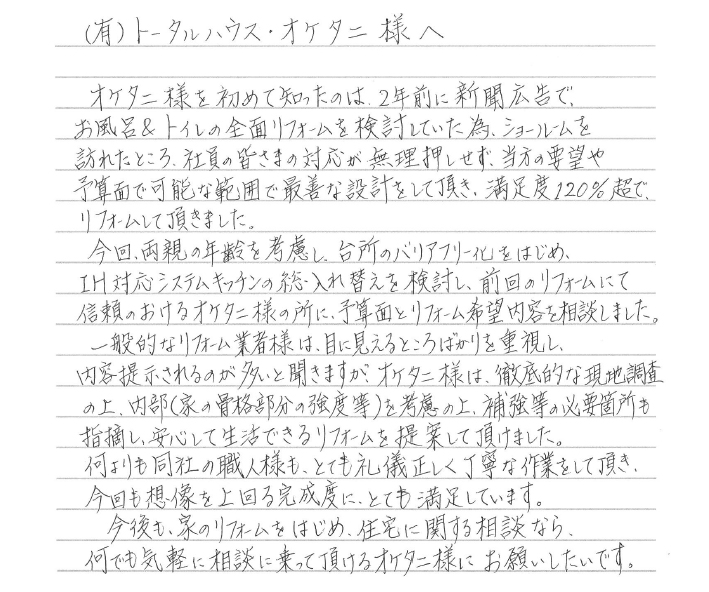 (有)トータルハウス・オケタニ 様へ
オケタニ様を初めて知ったのは、2年前に新聞広告で、
お風呂&トイレの全面リフォームを検討していた為、ショールームを
訪れたところ、社員の皆さまの対応が無理押しせず、当方の要望や
予算面で可能な範囲で最善な設計をして頂き、満足度120%超で、
リフォームして頂きました。
今回、両親の年齢を考慮し、台所のバリアフリー化をはじめ、
IH対応システムキッチンの総入れ替えを検討し、前回のリフォームにて
信頼のおけるオケタニ様の所に、予算面とリフォーム希望内容を相談しました。
一般的なリフォーム業者様は、目に見えるところばかりを重視し、
内容提示されるのが多いと聞きますが、オケタニ様は、徹底的な現地調査
の上、内部(家の骨格部分の強度等)を考慮の上、補強等の必要箇所も
指摘し、安心して生活できるリフォームを提案して頂けました。
何よりも同社の職人様も、とても礼儀正しく丁寧な作業をして頂き、
今回も想像を上回る完成度に、とても満足しています。
今後も、家のリフォームをはじめ、住宅に関する相談なら、
何でも気軽に相談に乗って頂けるオケタニ様に お願いしたいです。